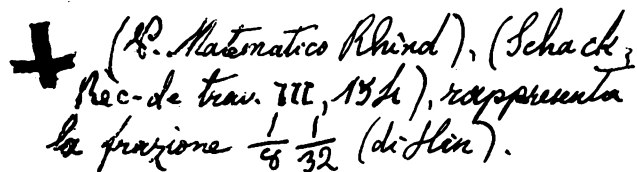 (P. Matematico Rhind), (Schack,
Rec-de trav. III, 154), rappresenta
la frazione 1/8 1/32 (di Hin).